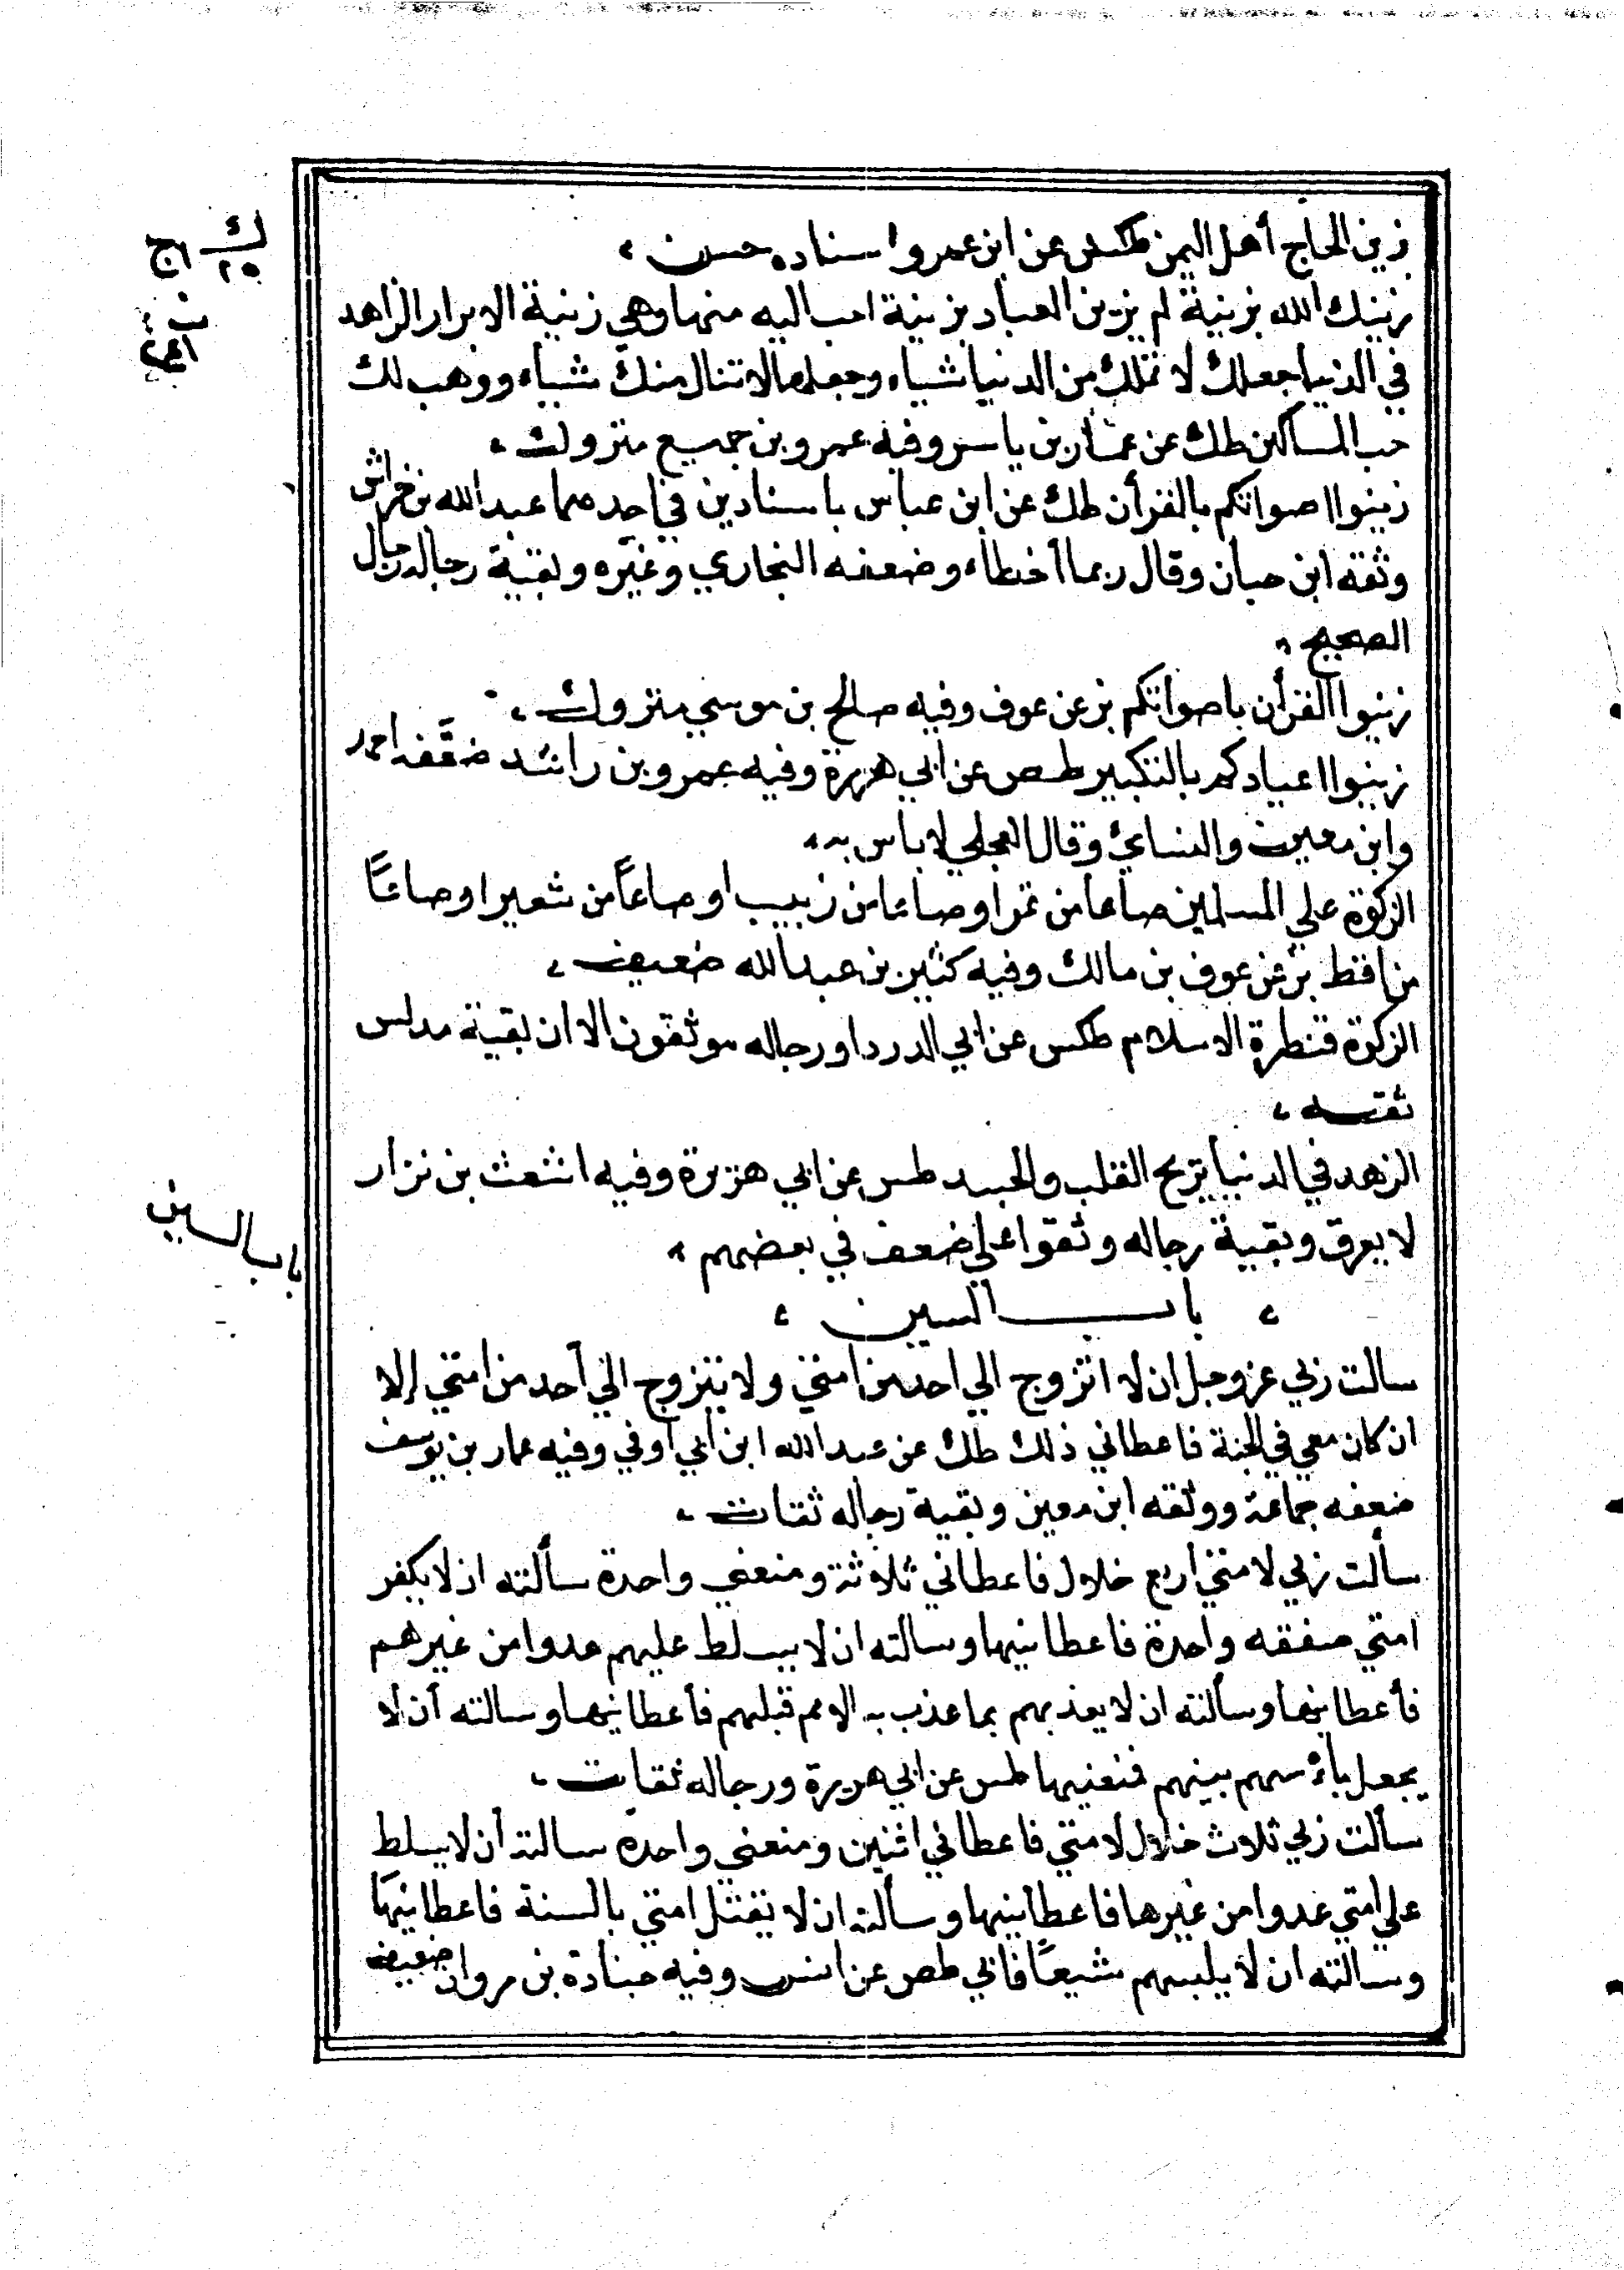 زين الحاج أهل اليمن طكس عن ابن عمر واسناده حسن ،
زينك الله بزينة لم يزين العباد بزينة احب اليه منها وهي زينة الابرار الزاهد
في الدنيا جعلك لا تملك من الدنيا شياء وجعلها لا تنال منك شياء ووهب لك
حب المساكين طك عن عمار بن ياسر وفيه عمرو بن جميع متروك ،
زينوا اصواتكم بالقرأن طك عن ابن عباس باسنادين في احدهما عبد الله بن خراش
وثقه ابن حبان وقال ربما أخطاء وضعفه البخاري وغيره وبقية رجاله رجال
الصحيح ،
زينوا القرأن باصواتكم بز عن عوف وفيه صالح بن موسي متروك ،
زينوا اعيادكم بالتكبير طص عن ابي هريرة وفيه عمرو بن راشد ضعفه احمد
وابن معين والنسائي وقال العجلي لا باس به ،
الزكوة علي المسلمين صاعا من تمر او صاعا من زبيب او صاعاً من شعير او صاعاً
من اقط بز عن عوف بن مالك وفيه كثير بن عبد الله ضعيف ،
الزكوة قنطرة الاسلام طكس عن ابي الدردا ورجاله موثقون الا ان بقية مدلس
ثقه ،
الزهد في الدنيا يريح القلب والجسد طس عن ابي هريرة وفيه اشعث بن نزار
لا يعرف وبقية رجاله وثقوا علي ضعف في بعضهم ،
، باب السين ،
سالت ربي عز وجل ان لا اتزوج الي احد من امتي ولا يتزوج الي أحد من امتي إلا
ان كان معي في الجنة فاعطاني ذلك طك عن عبد الله ابن ابي أوفي وفيه عمار بن يوسف
ضعفه جماعة ووثقه ابن معين وبقية رجاله ثقات ،
سألت ربي لامتي اربع خلال فاعطاني ثلاثة ومنعني واحدة سألته ان لا يكفر
امتي صفقه واحدة فاعطانيها وسالته ان لا يسلط عليهم عدوا من غيرهم
فأعطانيها وسألته ان لا يعذبهم بما عذب به الامم قبلهم فأعطانيها وسالته أن لا
يجعل بأسهم بينهم فمنعنيها طس عن ابي هريرة ورجاله ثقات ،
سألت ربي ثلاث خلال لامتي فاعطاني اثنين ومنعني واحدة سالته أن لا يسلط
علي امتي عدوا من غيرها فاعطانيها وسألته ان لا يقتل امتي بالسنة فاعطانيها
وسالته ان لا يلبسهم شيعاً فابي طص عن انس وفيه جنادة بن مروان ضعيف
باب السين